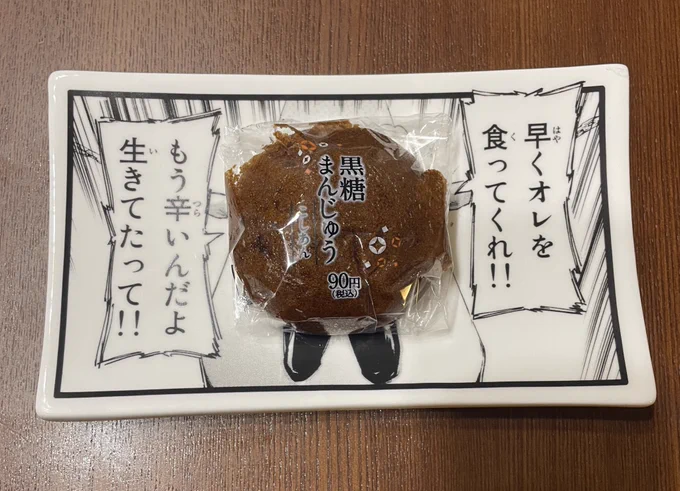 早くオレを
食ってくれ!!
黒糖
まんじゅう
こしあん
90円
(税込)
もう辛いんだよ
生きてたって!!